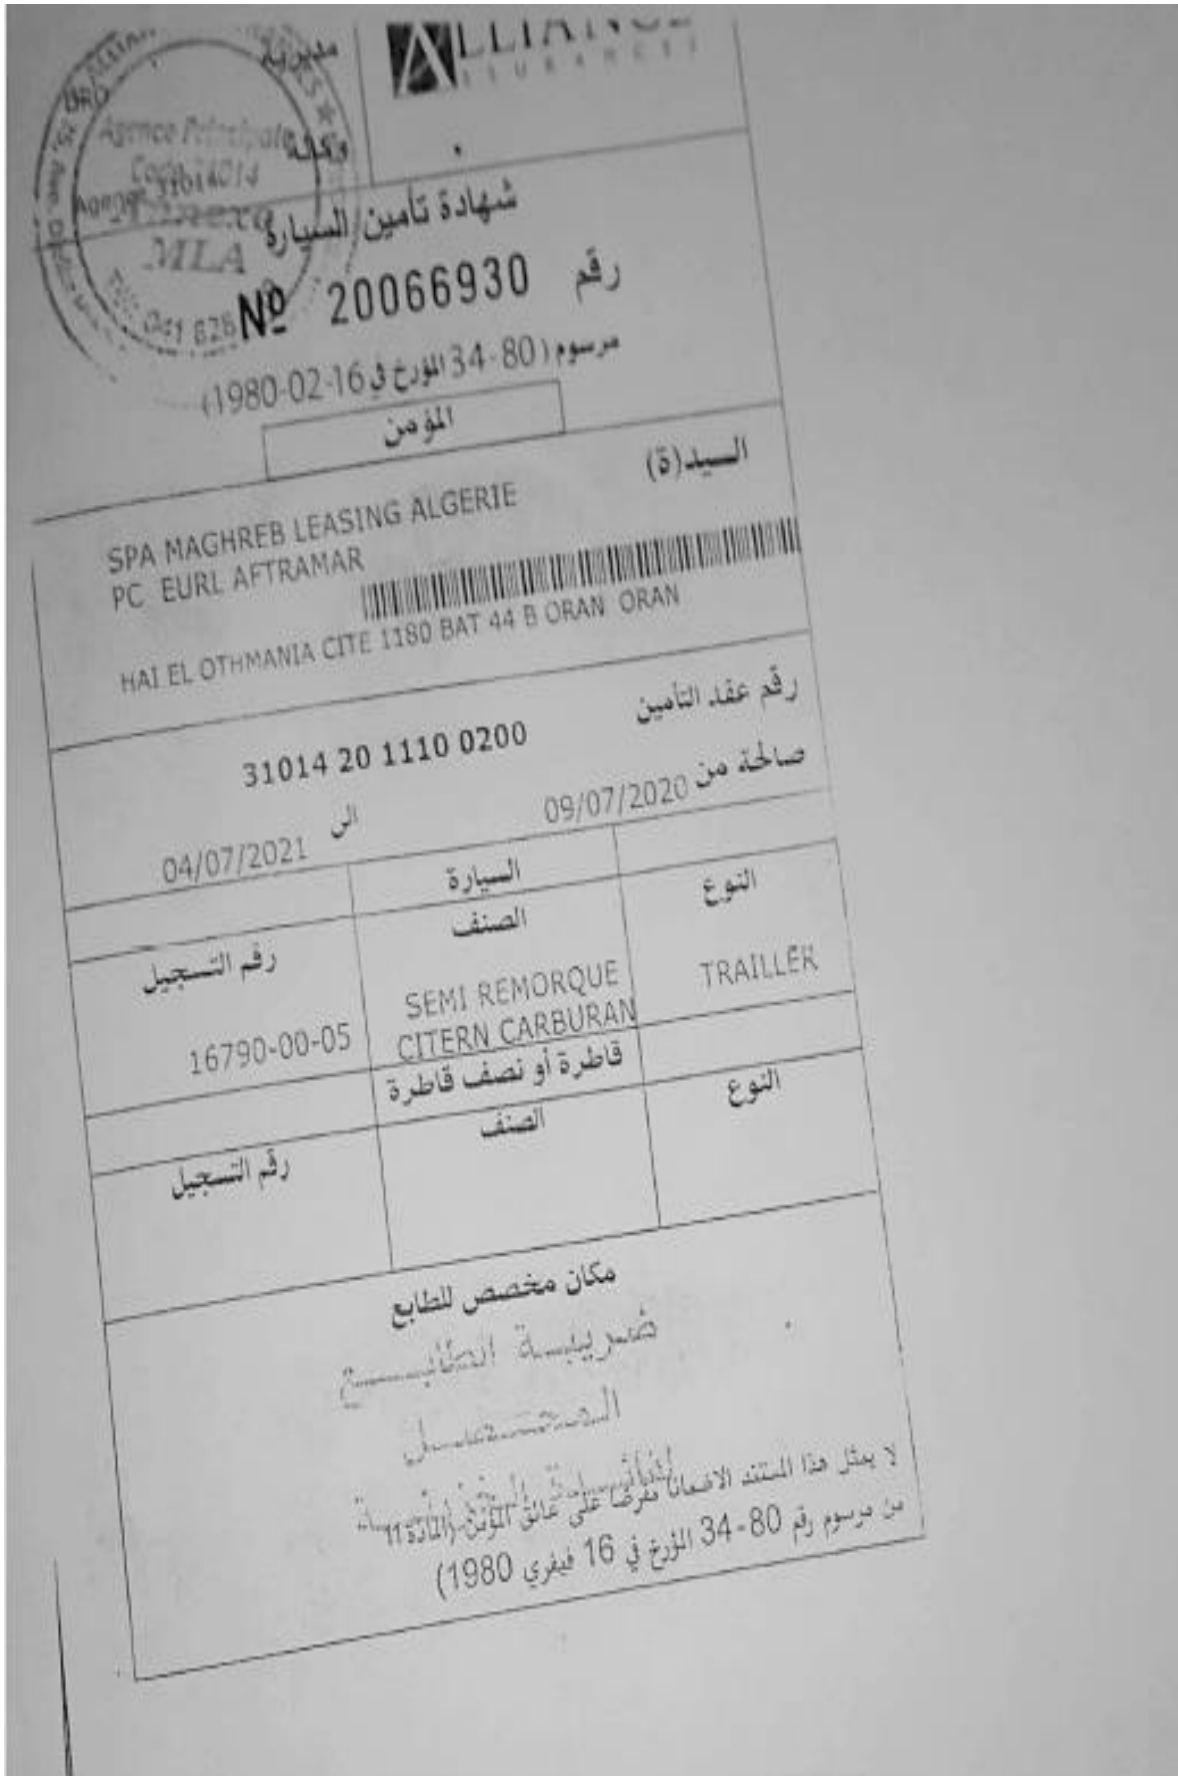 ALLIANCE
ASSURANCES
مديرية
وكالة
Agence Principale
Annexe
MLA
شهادة تأمين السيارة
رقم 20066930 Nº
مرسوم (80-34 المؤرخ في 16-02-1980)
المؤمن
السيد(ة)
SPA MAGHREB LEASING ALGERIE
PC EURL AFTRAMAR
HAI EL OTHMANIA CITE 1180 BAT 44 B ORAN ORAN
رقم عقد التأمين 31014 20 1110 0200
صالحة من 09/07/2020 الى 04/07/2021
السيارة
النوع الصنف رقم التسجيل
TRAILLER SEMI REMORQUE
CITERN CARBURAN 16790-00-05
قاطرة أو نصف قاطرة
النوع الصنف رقم التسجيل
مكان مخصص للطابع
ضريبة الطابع
المحصل
لفائدة
لا يمثل هذا المستند الاضمانا مفرضا على عاتق المؤمن (المادة 11
من مرسوم رقم 80-34 المؤرخ في 16 فيفري 1980)